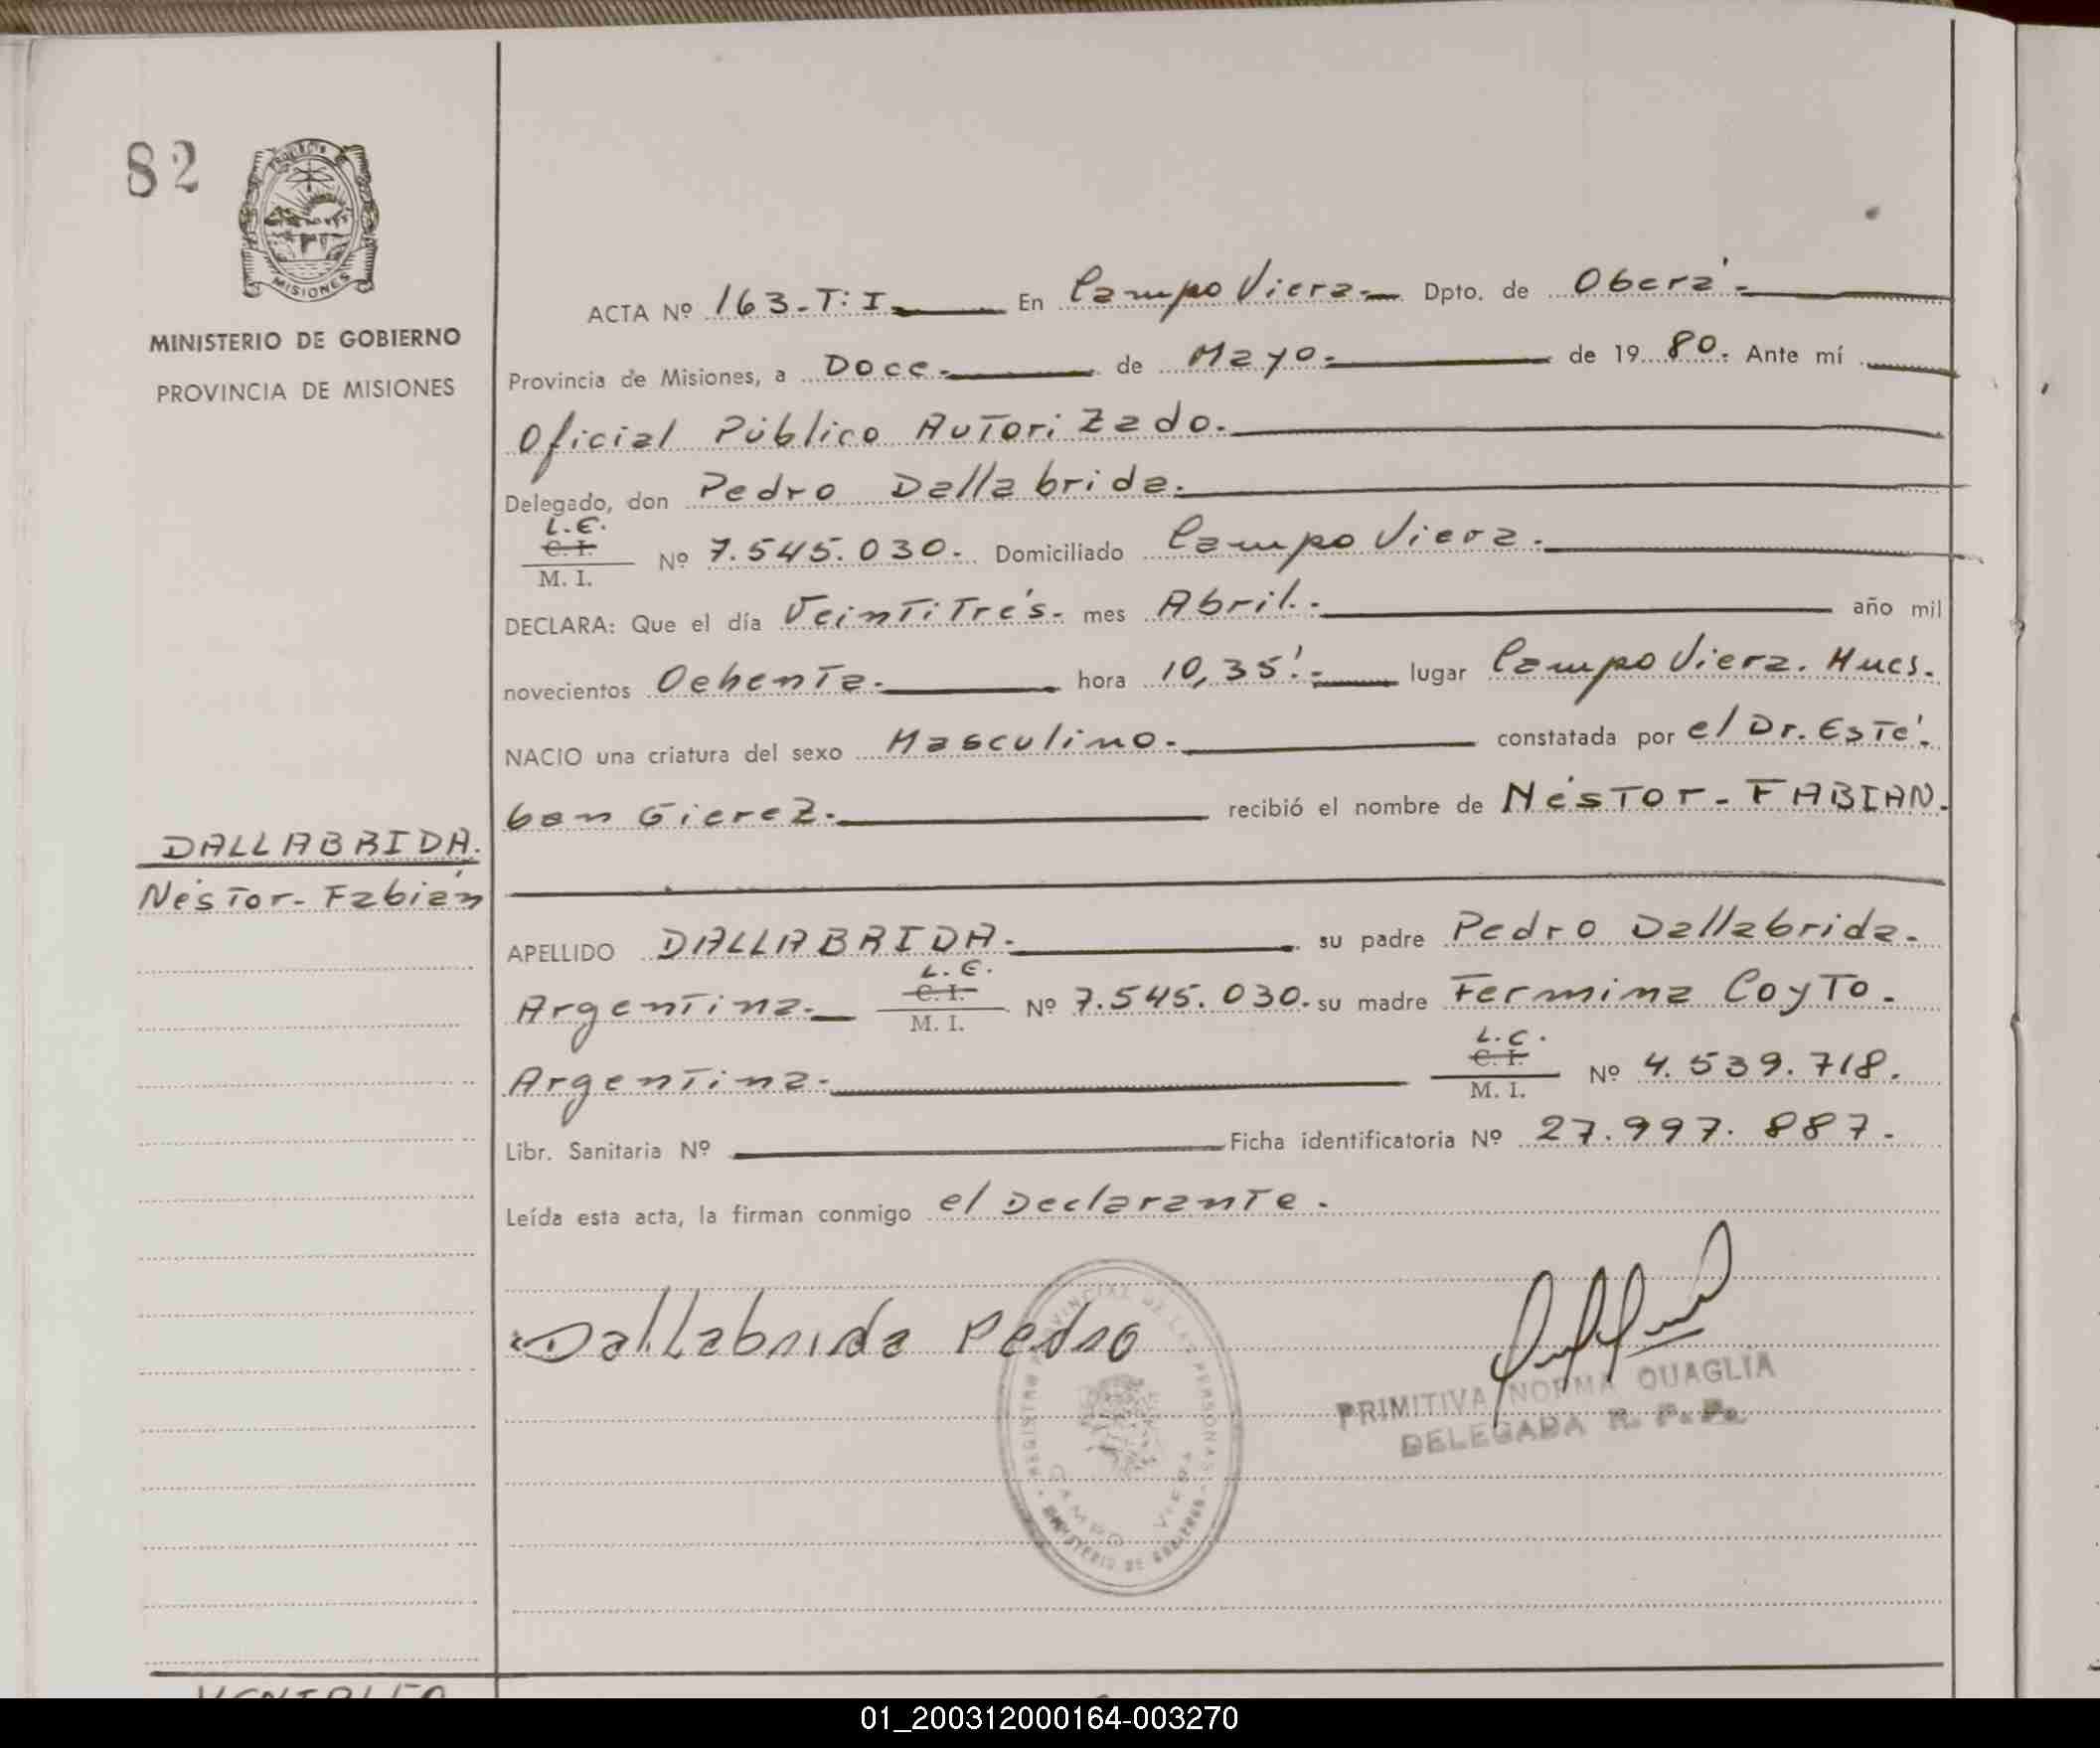 82
PROVINCIA DE
MISIONES
MINISTERIO DE GOBIERNO
PROVINCIA DE MISIONES
ACTA Nº 163.T:I. En Campo Viera. Dpto. de Oberá.
Provincia de Misiones, a Doce. de Mayo. de 1980. Ante mí
Oficial Público Autorizado.
Delegado, don Pedro Dallabrida.
L.E.
C. I.
M. I. Nº 7.545.030. Domiciliado Campo Viera.
DECLARA: Que el día Veintitrés. mes Abril. año mil
novecientos Ochenta. hora 10,35'. lugar Campo Viera. Mnes.
NACIO una criatura del sexo Masculino. constatada por el Dr. Esté
ban Gierez. recibió el nombre de NéSTOR-FABIAN.
DALLABRIDA.
Néstor-Fabián
APELLIDO DALLABRIDA. su padre Pedro Dallabrida.
L.E.
Argentina. C. I. M. I. Nº 7.545.030. su madre Fermina Coyto.
L.C.
Argentina. C. I. M. I. Nº 4.539.718.
Libr. Sanitaria Nº Ficha identificatoria Nº 27.997.887.
Leída esta acta, la firman conmigo el Declarante.
Dallabrida Pedro
REGISTRO PROVINCIAL DE LAS PERSONAS
CAMPO VIERA
MINISTERIO DE GOBIERNO
PRIMITIVA NORMA QUAGLIA
DELEGADA R. P. P.
01_200312000164-003270